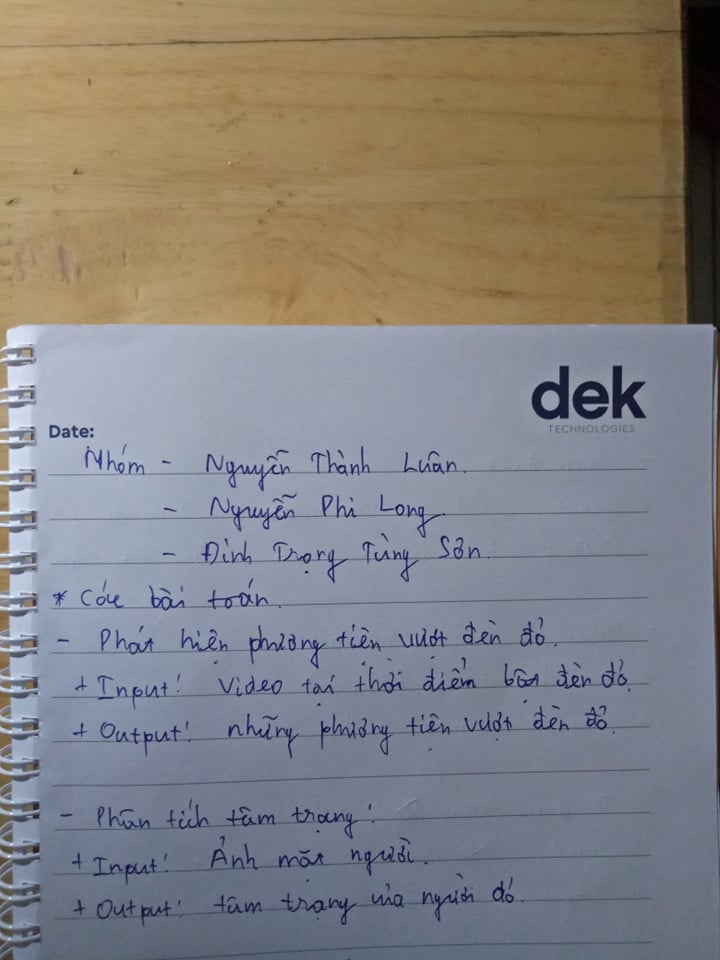 dek
TECHNOLOGIES
Date:
Nhóm - Nguyễn Thành Luân.
- Nguyễn Phi Long.
- Đinh Trọng Tùng Sơn.
* Các bài toán.
- Phát hiện phương tiện vượt đèn đỏ.
+ Input: Video tại thời điểm bật đèn đỏ.
+ Output: những phương tiện vượt đèn đỏ.
- Phân tích tâm trạng:
+ Input: Ảnh mặt người.
+ Output: tâm trạng của người đó.